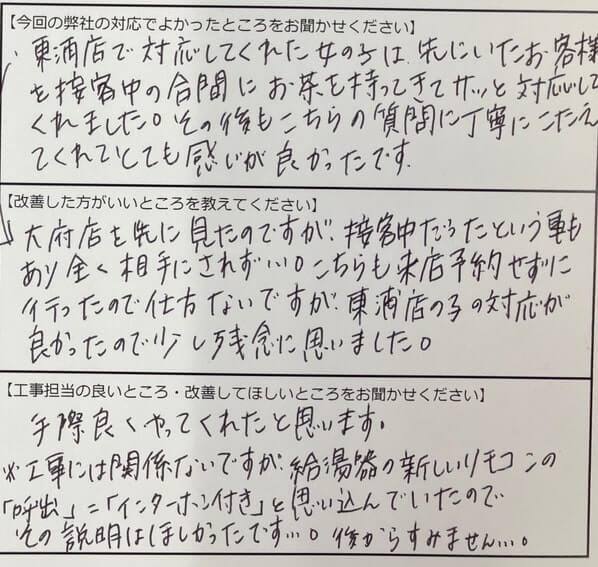 【今回の弊社の対応でよかったところをお聞かせください】
東浦店で対応してくれた女の子は、先にいたお客様
を接客中の合間にお茶を持ってきてサッと対応して
くれました。その後もこちらの質問に丁寧にこたえ
てくれてとても感じが良かったです.
【改善した方がいいところを教えてください】
大府店を先に見たのですが、接客中だったという事も
あり全く相手にされず…。こちらも来店予約せずに
行ったので仕方ないですが、東浦店の子の対応が
良かったので少し残念に思いました。
【工事担当の良いところ・改善してほしいところをお聞かせください】
手際良くやってくれたと思います。
※工事には関係ないですが、給湯器の新しいリモコンの
「呼出」=「インターホン付き」と思い込んでいたので
その説明はほしかったです…。後からすみません…。